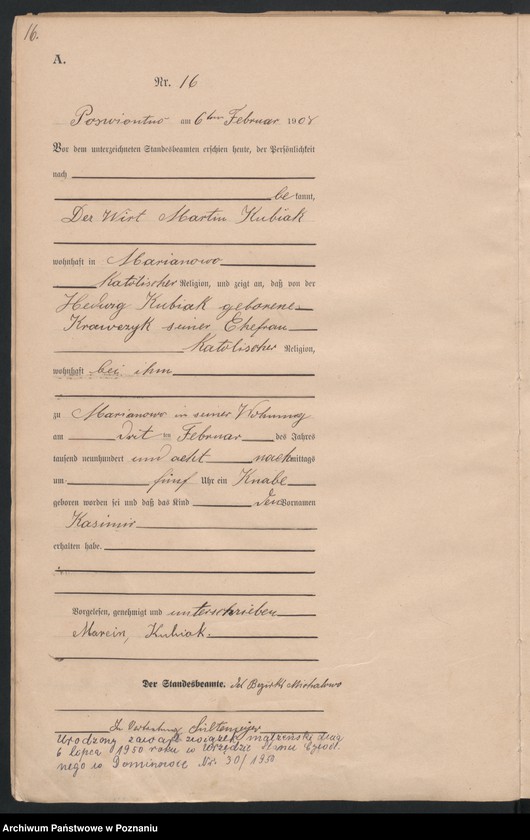 16.
A.
Nr. 16
Poswiontno am 6ten Februar 1908
Vor dem unterzeichneten Standesbeamten erschien heute, der Persönlichkeit
nach
be kannt,
Der Wirt Martin Kubiak
wohnhaft in Marianowo
Katolischer Religion, und zeigt an, daß von der
Hedwig Kubiak geborene
Krawczyk seiner Ehefrau
Katolischer Religion,
wohnhaft bei ihm
zu Marianowo in seiner Wohnung
am Drit ten Februar des Jahres
tausend neunhundert und acht nachmittags
um fünf Uhr ein Knabe
geboren worden sei und daß das Kind den Vornamen
Kasimir
erhalten habe.
Vorgelesen, genehmigt und unterschrieben
Marcin, Kubiak.
Der Standesbeamte. des Bezirks Michalowo
In Vertretung
Urodzony zawarł związek małżeński dnia
6 lipca 1950 roku w Urzędzie Stanu Cywil
nego w Dominowie Nr. 30/1950
Archiwum Państwowe w Poznaniu